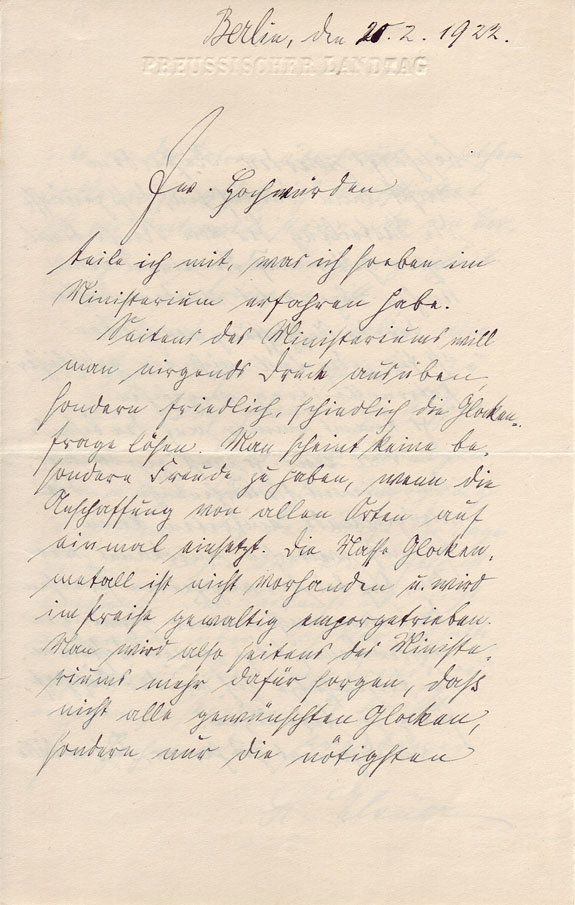 Berlin, den 20.2.1922.
PREUSSISCHER LANDTAG
Ew. Hochwürden
teile ich mit, was ich soeben im
Ministerium erfahren habe.
Seitens des Ministeriums will
man nirgends Druck ausüben,
sondern friedlich, schiedlich die Glocken-
frage lösen. Man scheint keine be-
sondere Freude zu haben, wenn die
Anschaffung von allen Orten auf
einmal einsetzt. Die Masse Glocken-
metall ist nicht vorhanden u. wird
im Preise gewaltig emporgetrieben.
Man wird also seitens des Ministe-
riums mehr dafür sorgen, daß
nicht alle gewünschten Glocken,
sondern nur die nötigsten